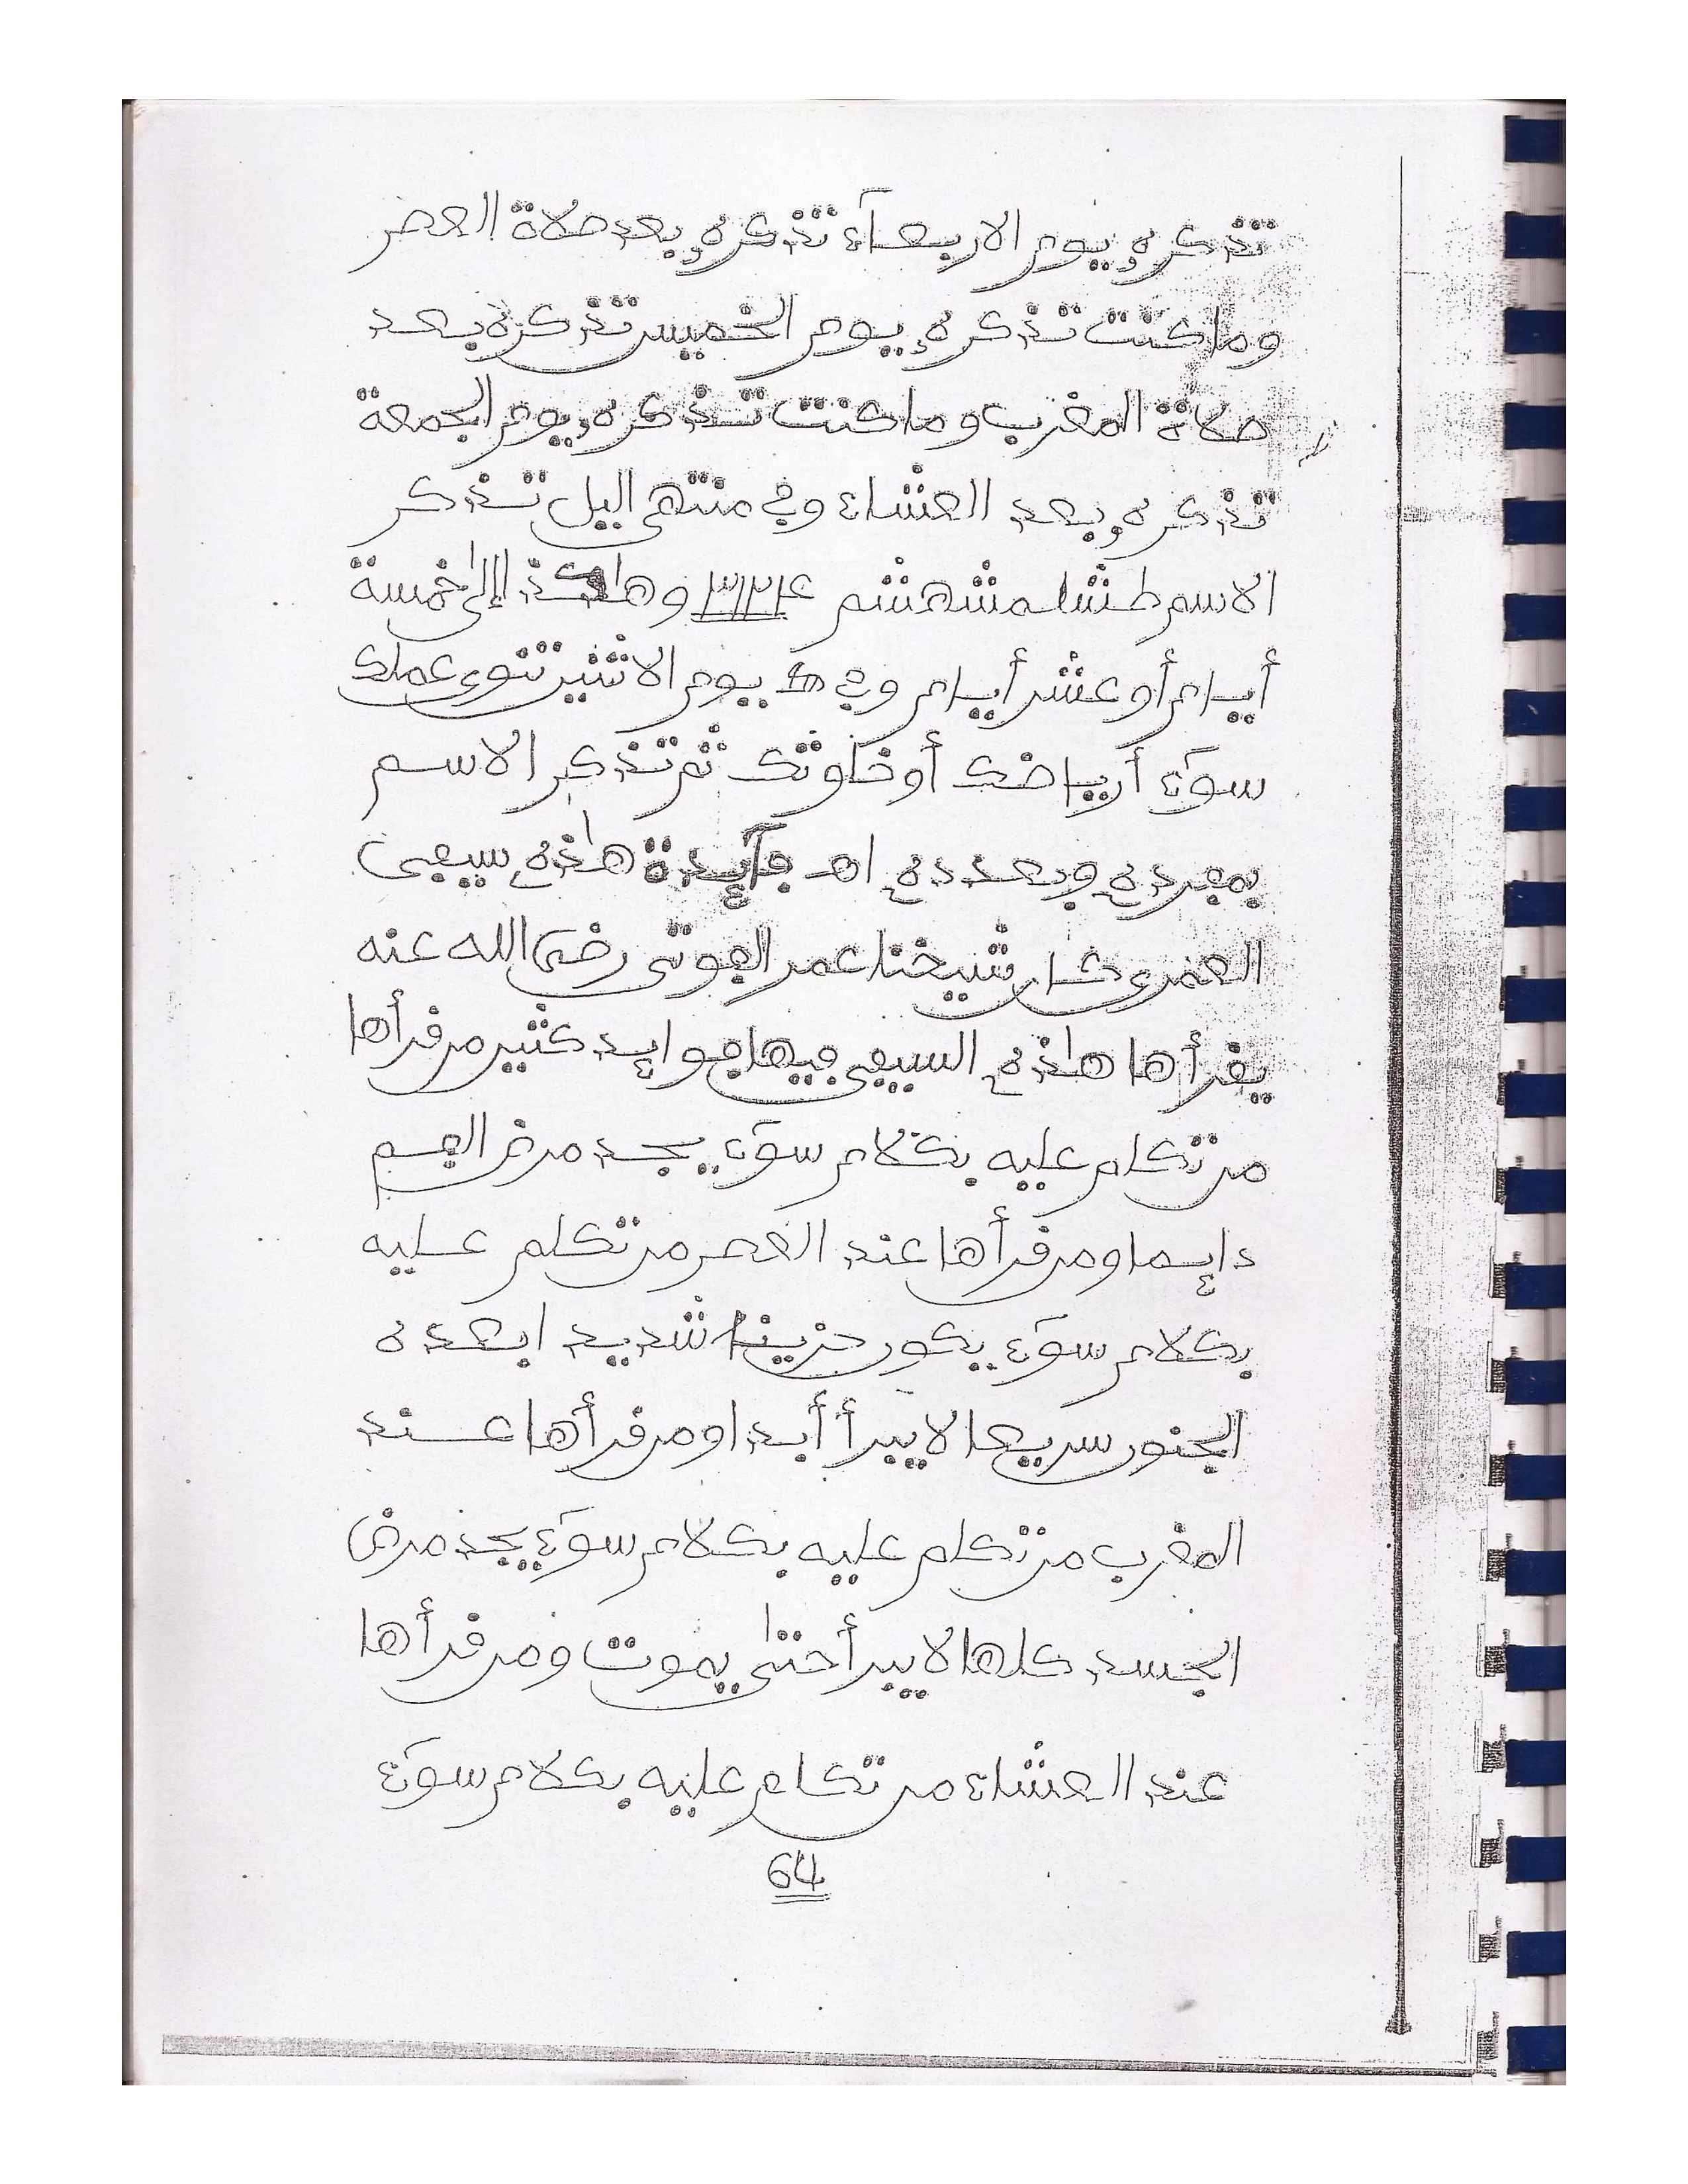 تذكره يوم الاربعآء تذكره بعد صلاة العصر
وما كنت تذكره يوم الخميس تذكره بعد
صلاة المغرب وما كنت تذكره يوم الجمعة
تذكره بعد العشاء وفي منتهى اليل تذكر
الاسم طشلمشهشم ٣١٢٤ وهاكذا إلى خمسة
أيام أو عشر أيام وفي يوم الاثنين تنوي عملك
سوآء أرياضك أو خلوتك ثم تذكر الاسم
بمفرده وبعدده اهـ فآيدة هاذه سيفى
العمري كان شيخنا عمر الفوتي رضي الله عنه
يقرأها هاذه السيفي فيها فوايد كثير من قرأها
من تكلم عليه بكلام سوء يجد مرض الفم
دايما ومن قرأها عند العصر من تكلم عليه
بكلام سوء يكون حزينا شديدا بعده
الجنون سريعا لا يبرأ أبدا ومن قرأها عند
المغرب من تكلم عليه بكلام سوء يجد مرض
الجسد كلها لا يبرأ حتى يموت ومن قرأها
عند العشاء من تكلم عليه بكلام سوء
64